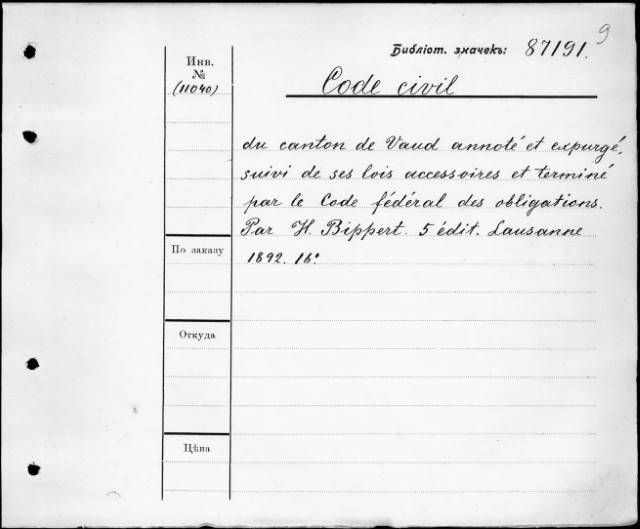 9
Библіот. значекъ: 87191.
Инв.
№
(11040)
Code civil
du canton de Vaud annoté et expurgé,
suivi de ses lois accessoires et terminé
par le Code fédéral des obligations.
Par H. Bippert. 5 édit. Lausanne
1892. 16°
По заказу
Откуда
Цѣна